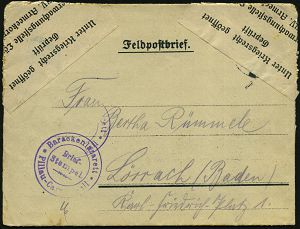 Unter Kriegsrecht geöffnet
Geprüft
Unter Kriegsrecht geöffnet
Geprüft
Feldpostbrief.
Frau
Bertha Rümmele
Lörrach (Baden)
Karl-Friedrich Platz 1.
Barackenlazarett
Brief-
Stempel